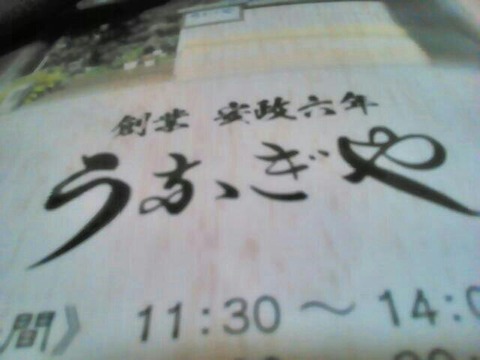 創業 安政六年
うなぎや
間》 11:30～14:0